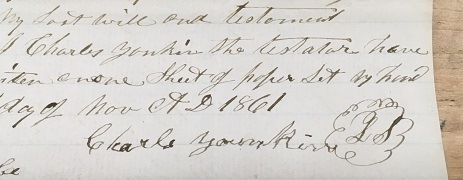 my last will and testament
I Charles Yonkin the testator have
itten on one Sheet of paper Set my hand
day of Nov A D 1861
Charls Younkin LS